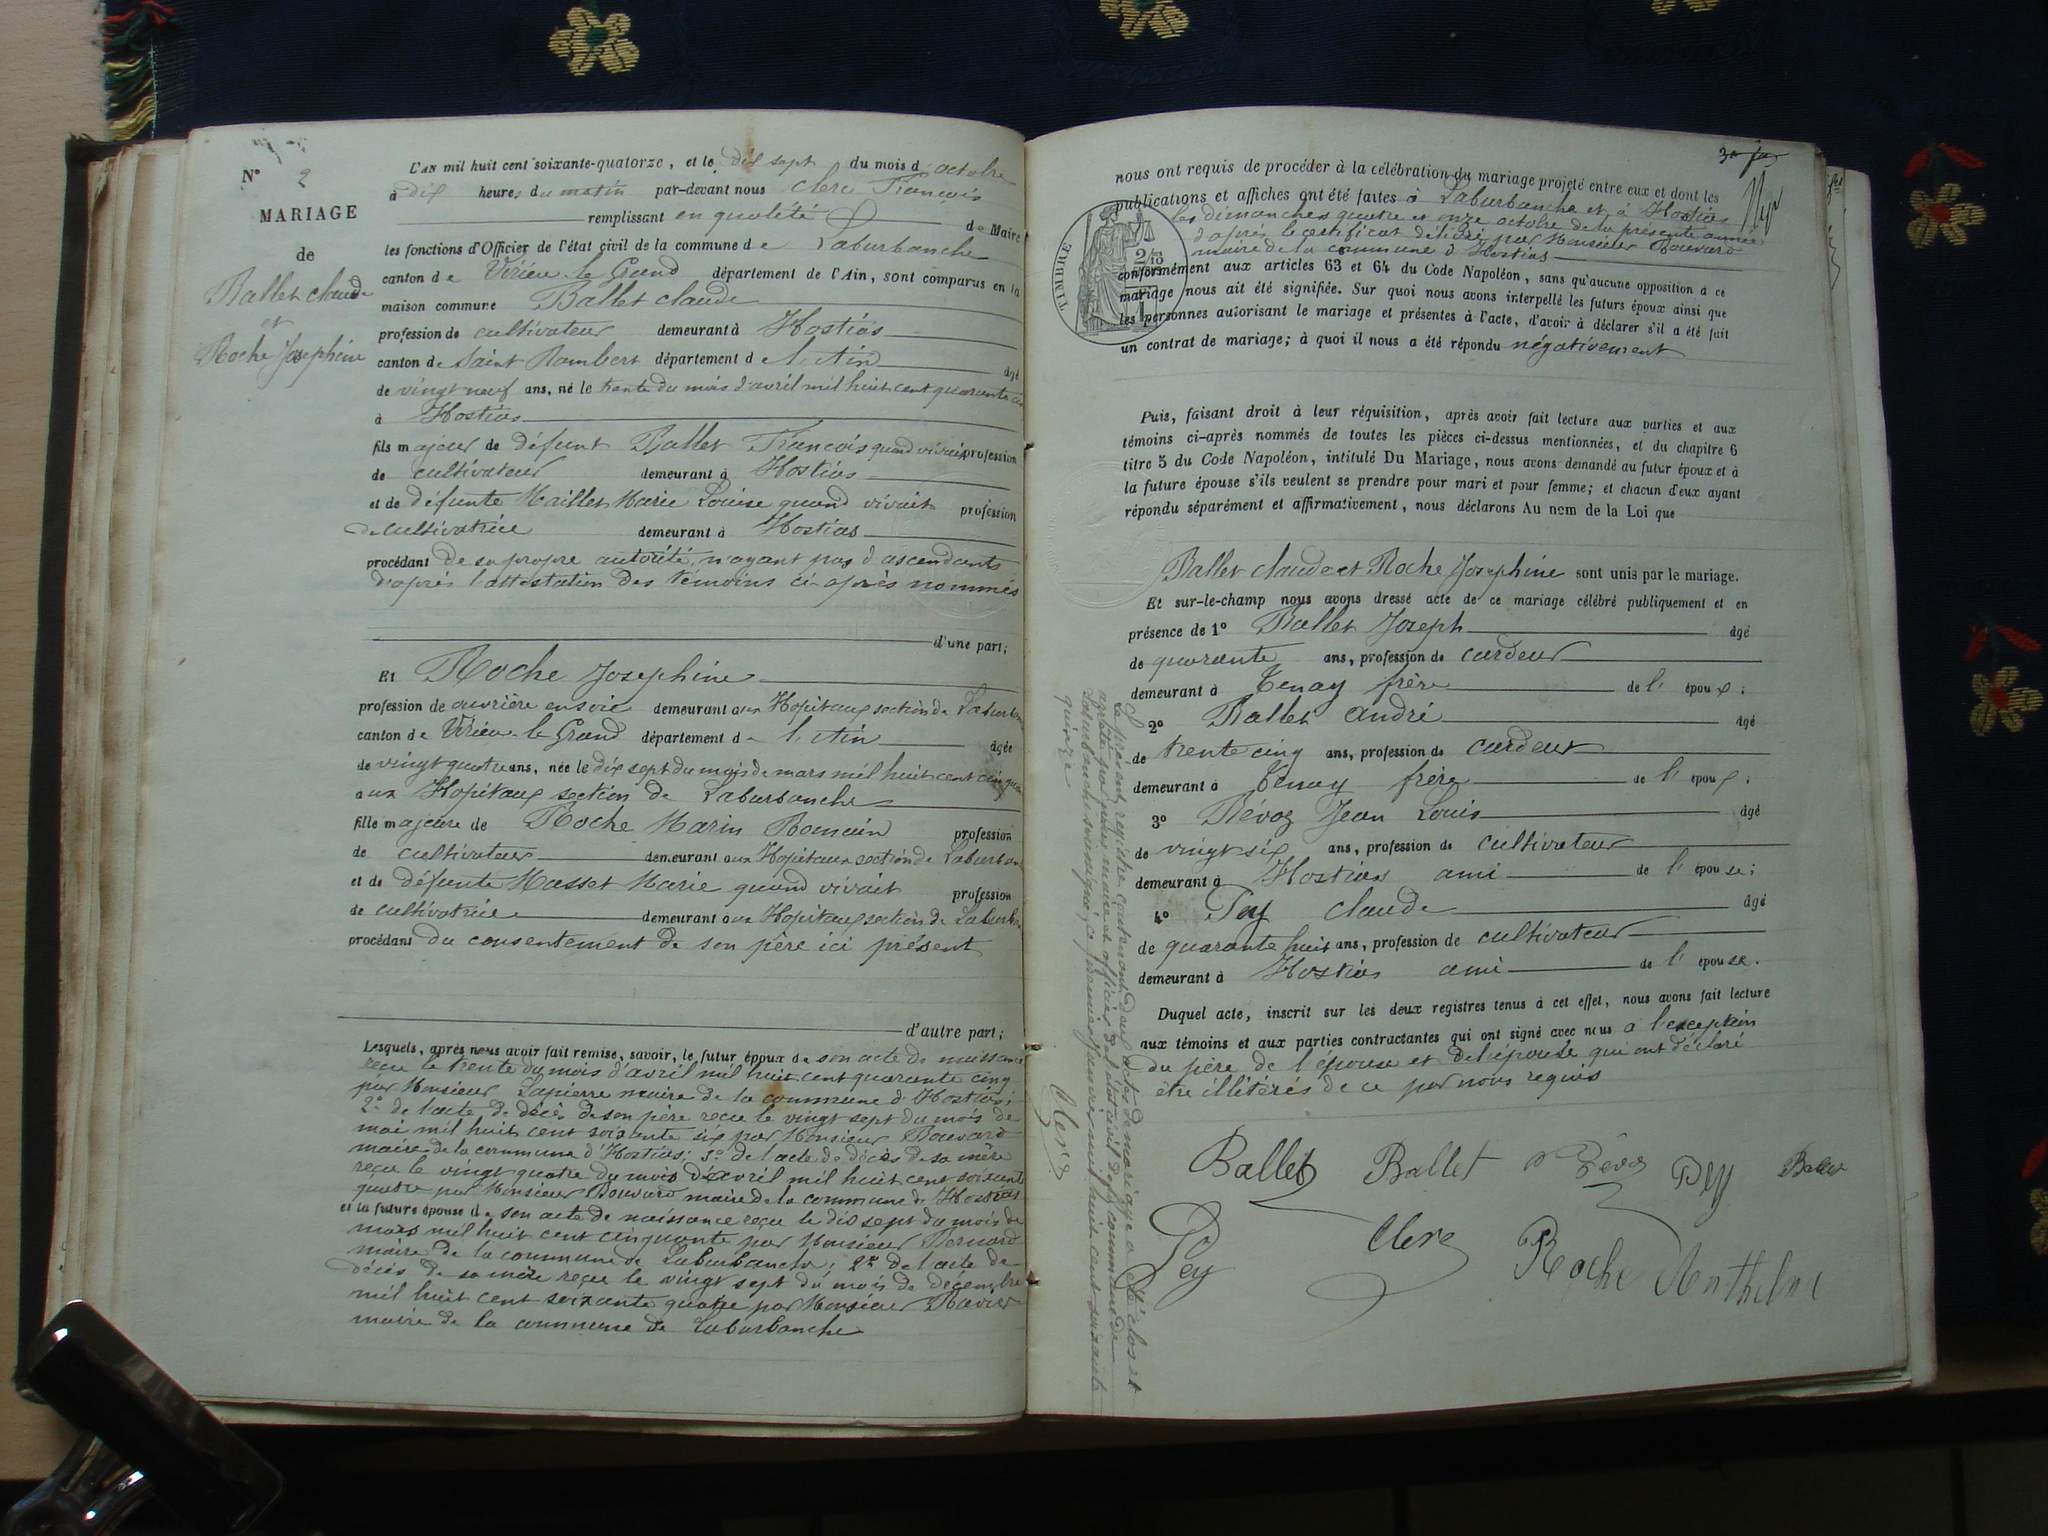 N° 2
MARIAGE
de
Ballet claude
et
Roche Josephine
L'AN mil huit cent soixante-quatorze, et le dix sept du mois d'octobre
à dix heures du matin par-devant nous Clerc François
remplissant en qualité de Maire
les fonctions d'Officier de l'état civil de la commune de Laburbanche
canton de Virieu-le-Grand département de l'Ain, sont comparus en la
maison commune Ballet claude
profession de cultivateur demeurant à Hostias
canton de Saint Rambert département de l'Ain âgé
de vingt neuf ans, né le trente du mois d'avril mil huit cent quarante cinq
à Hostias
fils majeur de défunt Ballet François quand vivait profession
de cultivateur demeurant à Hostias
et de défunte Maillet Marie Louise quand vivait profession
de cultivatrice demeurant à Hostias
procédant de sa propre autorité, n'ayant pas d'ascendants
d'après l'attestation des témoins ci-après nommés
d'une part;
Et Roche Josephine
profession de ouvrière en soie demeurant aux Hopitaux section de Laburban
canton de Virieu-le-Grand département de l'Ain âgée
de vingt quatre ans, née le dix sept du mois de mars mil huit cent cinquante
aux Hopitaux section de Laburbanche
fille majeure de Roche Marin Romain profession
de cultivateur demeurant aux Hopitaux section de Laburban
et de défunte Masset Marie quand vivait profession
de cultivatrice demeurant aux Hopitaux section de Laburba
procédant du consentement de son père ici présent
d'autre part;
Lesquels, après nous avoir fait remise, savoir, le futur époux de son acte de naissance
reçu le trente du mois d'avril mil huit cent quarante cinq
par Monsieur Lapierre maire de la commune d'Hostias;
2° de l'acte de décès de son père reçu le vingt sept du mois de
mai mil huit cent soixante six par Monsieur Bouvard
maire de la commune d'Hostias; 3° de l'acte de décès de sa mère
reçu le vingt quatre du mois d'avril mil huit cent soixante
quatre par Monsieur Bouvard maire de la commune de Hostias
et la future épouse de son acte de naissance reçu le dix sept du mois de
mars mil huit cent cinquante par Monsieur Bernard
maire de la commune de Laburbanche; 2° de l'acte de
décès de sa mère reçu le vingt sept du mois de decembre
mil huit cent soixante quatre par Monsieur Ravier
maire de la commune de Laburbanche
nous ont requis de procéder à la célébration du mariage projeté entre eux et dont les
publications et affiches ont été faites à Laburbanche et à Hostias
les dimanches quatre et onze octobre de la présente année
d'après le certificat délivré par Monsieur Bouvard
maire de la commune d'Hostias
TIMBRE
conformément aux articles 63 et 64 du Code Napoléon, sans qu'aucune opposition à ce
mariage nous ait été signifiée. Sur quoi nous avons interpellé les futurs époux ainsi que
les personnes autorisant le mariage et présentes à l'acte, d'avoir à déclarer s'il a été fait
un contrat de mariage; à quoi il nous a été répondu négativement
Puis, faisant droit à leur réquisition, après avoir fait lecture aux parties et aux
témoins ci-après nommés de toutes les pièces ci-dessus mentionnées, et du chapitre 6
titre 5 du Code Napoléon, intitulé Du Mariage, nous avons demandé au futur époux et à
la future épouse s'ils veulent se prendre pour mari et pour femme; et chacun d'eux ayant
répondu séparément et affirmativement, nous déclarons Au nom de la Loi que
Ballet claude et Roche Josephine sont unis par le mariage.
Et sur-le-champ nous avons dressé acte de ce mariage célébré publiquement et en
présence de 1° Ballet Joseph âgé
de quarante ans, profession de cardeur
demeurant à Tenay frère de l'époux;
2° Ballet André âgé
de trente cinq ans, profession de cardeur
demeurant à Tenay frère de l'époux;
3° Bévoz Jean Louis âgé
de vingt six ans, profession de cultivateur
demeurant à Hostias ami de l'épouse;
4° Pey Claude âgé
de quarante huit ans, profession de cultivateur
demeurant à Hostias ami de l'épouse.
Duquel acte, inscrit sur les deux registres tenus à cet effet, nous avons fait lecture
aux témoins et aux parties contractantes qui ont signé avec nous à l'exception
du père de l'épouse et de l'épouse qui ont déclaré
être illitérés de ce par nous requis
Ballet Ballet Bévoz Pey
Pey Clerc Roche Anthelme
Le présent registre contenant deux actes de mariage a été clos et
arrêté par nous maire et officier de l'état civil de la commune de
Laburbanche soussigné, ce premier Janvier mil huit cent soixante
quinze
Clerc